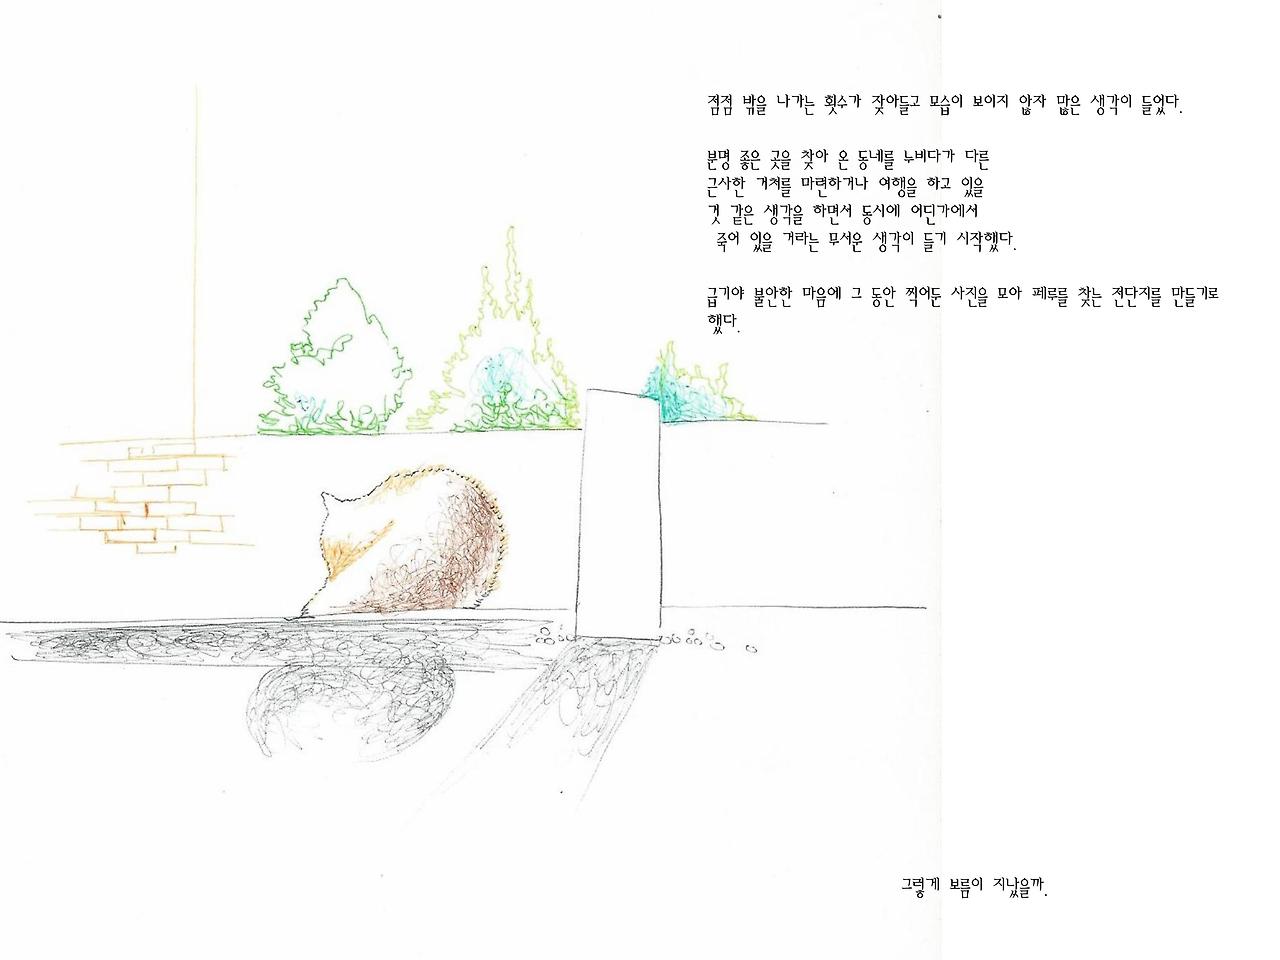 점점 밖을 나가는 횟수가 잦아들고 모습이 보이지 않자 많은 생각이 들었다.
분명 좋은 곳을 찾아 온 동네를 누비다가 다른
근사한 거처를 마련하거나 여행을 하고 있을
것 같은 생각을 하면서 동시에 어딘가에서
죽어 있을 거라는 무서운 생각이 들기 시작했다.
급기야 불안한 마음에 그 동안 찍어둔 사진을 모아 페루를 찾는 전단지를 만들기로
했다.
그렇게 보름이 지났을까.